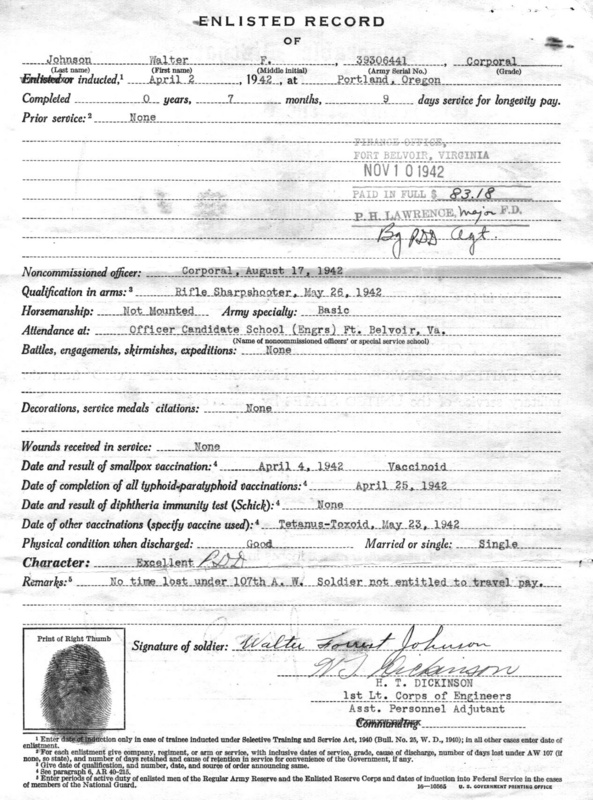 ENLISTED RECORD
OF
Johnson Walter F. , 39306441 , Corporal
(Last name) (First name) (Middle initial) (Army Serial No.) (Grade)
Enlisted or inducted,¹ April 2 , 1942 , at Portland, Oregon
Completed 0 years, 7 months, 9 days service for longevity pay.
Prior service:² None
FINANCE OFFICE,
FORT BELVOIR, VIRGINIA
NOV 10 1942
PAID IN FULL $ 83.18
P. H. LAWRENCE, Major F.D.
By PDD Agt.
Noncommissioned officer: Corporal, August 17, 1942
Qualification in arms:³ Rifle Sharpshooter, May 26, 1942
Horsemanship: Not Mounted Army specialty: Basic
Attendance at: Officer Candidate School (Engrs) Ft. Belvoir, Va.
(Name of noncommissioned officers' or special service school)
Battles, engagements, skirmishes, expeditions: None
Decorations, service medals citations: None
Wounds received in service: None
Date and result of smallpox vaccination:⁴ April 4, 1942 Vaccinoid
Date of completion of all typhoid-paratyphoid vaccinations:⁴ April 25, 1942
Date and result of diphtheria immunity test (Schick):⁴ None
Date of other vaccinations (specify vaccine used):⁴ Tetanus-Toxoid, May 23, 1942
Physical condition when discharged: Good Married or single: Single
Character: Excellent PDD
Remarks:⁵ No time lost under 107th A. W. Soldier not entitled to travel pay.
Print of Right Thumb
Signature of soldier: Walter Forrest Johnson
H. T. Dickinson
H. T. DICKINSON
1st Lt. Corps of Engineers
Asst. Personnel Adjutant
Commanding
¹ Enter date of induction only in case of trainee inducted under Selective Training and Service Act, 1940 (Bull. No. 25, W. D., 1940); in all other cases enter date of
enlistment.
² For each enlistment give company, regiment, or arm or service, with inclusive dates of service, grade, cause of discharge, number of days lost under AW 107 (if
none, so state), and number of days retained and cause of retention in service for convenience of the Government, if any.
³ Give date of qualification, and number, date, and source of order announcing same.
⁴ See paragraph 6, AR 40-215.
⁵ Enter periods of active duty of enlisted men of the Regular Army Reserve and the Enlisted Reserve Corps and dates of induction into Federal Service in the cases
of members of the National Guard. 16—10565 U. S. GOVERNMENT PRINTING OFFICE